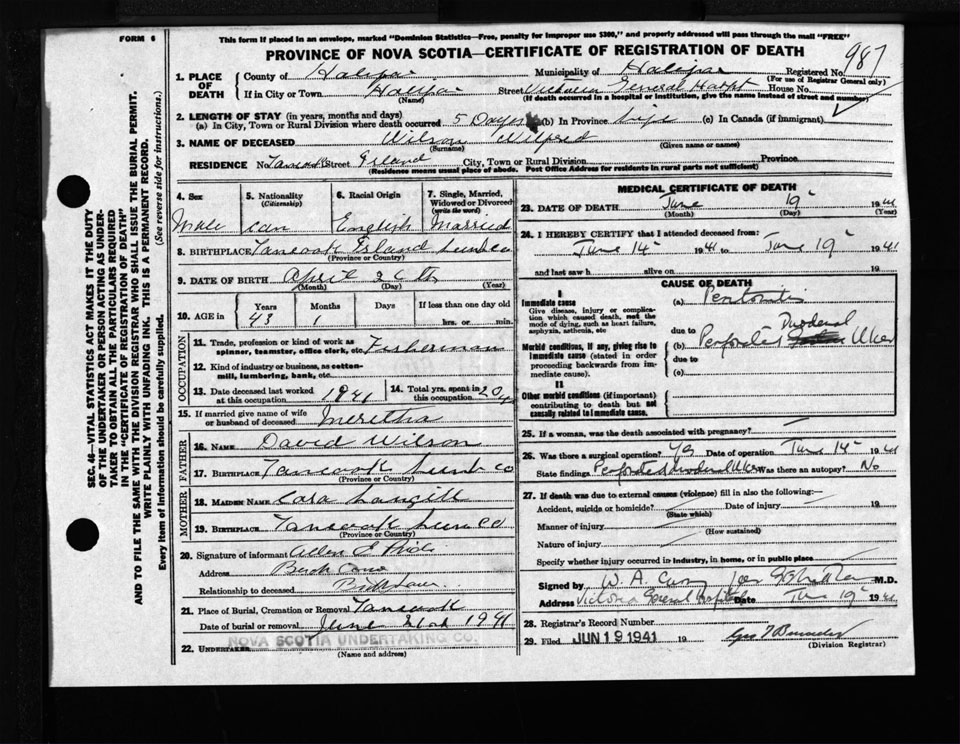 FORM 6
This form if placed in an envelope, marked "Dominion Statistics—Free, penalty for improper use $300," and properly addressed will pass through the mail "FREE"
PROVINCE OF NOVA SCOTIA—CERTIFICATE OF REGISTRATION OF DEATH
987
1. PLACE OF DEATH
County of Halifax Municipality of Halifax Registered No.
(For use of Registrar General only)
If in City or Town Halifax Street Victoria General Hospt House No.
(Name) (If death occurred in a hospital or institution, give the name instead of street and number)
2. LENGTH OF STAY (in years, months and days)
(a) In City, Town or Rural Division where death occurred 5 Days (b) In Province Life (c) In Canada (if immigrant)
3. NAME OF DECEASED Wilson Wilfred
(Surname) (Given name or names)
RESIDENCE No. Tancook Street Island City, Town or Rural Division Province
(Residence means usual place of abode. Post Office Address for residents in rural parts not sufficient)
4. Sex Male
5. Nationality (Citizenship) Can
6. Racial Origin English
7. Single, Married, Widowed or Divorced (write the word) Married
8. BIRTHPLACE Tancook Island Lun Co
(Province or Country)
9. DATE OF BIRTH April 26th
(Month) (Day) (Year)
10. AGE in Years Months Days If less than one day old
43 1 hrs. or min.
OCCUPATION
11. Trade, profession or kind of work as spinner, teamster, office clerk, etc. Fisherman
12. Kind of industry or business, as cotton-mill, lumbering, bank, etc.
13. Date deceased last worked at this occupation 1941
14. Total yrs. spent in this occupation 20 yrs
15. If married give name of wife or husband of deceased Meretha
FATHER
16. NAME David Wilson
17. BIRTHPLACE Tancook Lun Co
(Province or Country)
MOTHER
18. MAIDEN NAME Cora Langill
19. BIRTHPLACE Tancook Lun Co
(Province or Country)
20. Signature of informant Allen E
Address
Relationship to deceased
21. Place of Burial, Cremation or Removal Tancook
Date of burial or removal June 21st 1941
NOVA SCOTIA UNDERTAKING CO.
22. UNDERTAKER
(Name and address)
MEDICAL CERTIFICATE OF DEATH
23. DATE OF DEATH June 19 1941
(Month) (Day) (Year)
24. I HEREBY CERTIFY that I attended deceased from:
June 14 1941 to June 19 1941
and last saw h alive on 19
CAUSE OF DEATH
I
Immediate cause
Give disease, injury or complication which caused death, not the mode of dying, such as heart failure, asphyxia, asthenia, etc
(a) Peritonitis
due to
Morbid conditions, if any, giving rise to immediate cause (stated in order proceeding backwards from immediate cause).
(b) Perforated Duodenal Ulcer
due to
(c)
II
Other morbid conditions (if important) contributing to death but not causally related to immediate cause.
25. If a woman, was the death associated with pregnancy?
26. Was there a surgical operation? Yes Date of operation June 14 1941
State findings Perforated Duodenal Ulcer Was there an autopsy? No
27. If death was due to external causes (violence) fill in also the following:—
Accident, suicide or homicide? Date of injury 19
(State which)
Manner of injury
(How sustained)
Nature of injury
Specify whether injury occurred in industry, in home, or in public place
Signed by W. A. M.D.
Address Victoria General Hospital Date June 19 1941
28. Registrar's Record Number
29. Filed JUN 19 1941 19
(Division Registrar)
SEC. 46—VITAL STATISTICS ACT MAKES IT THE DUTY
OF THE UNDERTAKER OR PERSON ACTING AS UNDER-
TAKER TO OBTAIN ALL THE PARTICULARS REQUIRED
IN THE "CERTIFICATE OF REGISTRATION OF DEATH"
AND TO FILE THE SAME WITH THE DIVISION REGISTRAR WHO SHALL ISSUE THE BURIAL PERMIT.
WRITE PLAINLY WITH UNFADING INK. THIS IS A PERMANENT RECORD.
Every item of information should be carefully supplied. (See reverse side for instructions.)